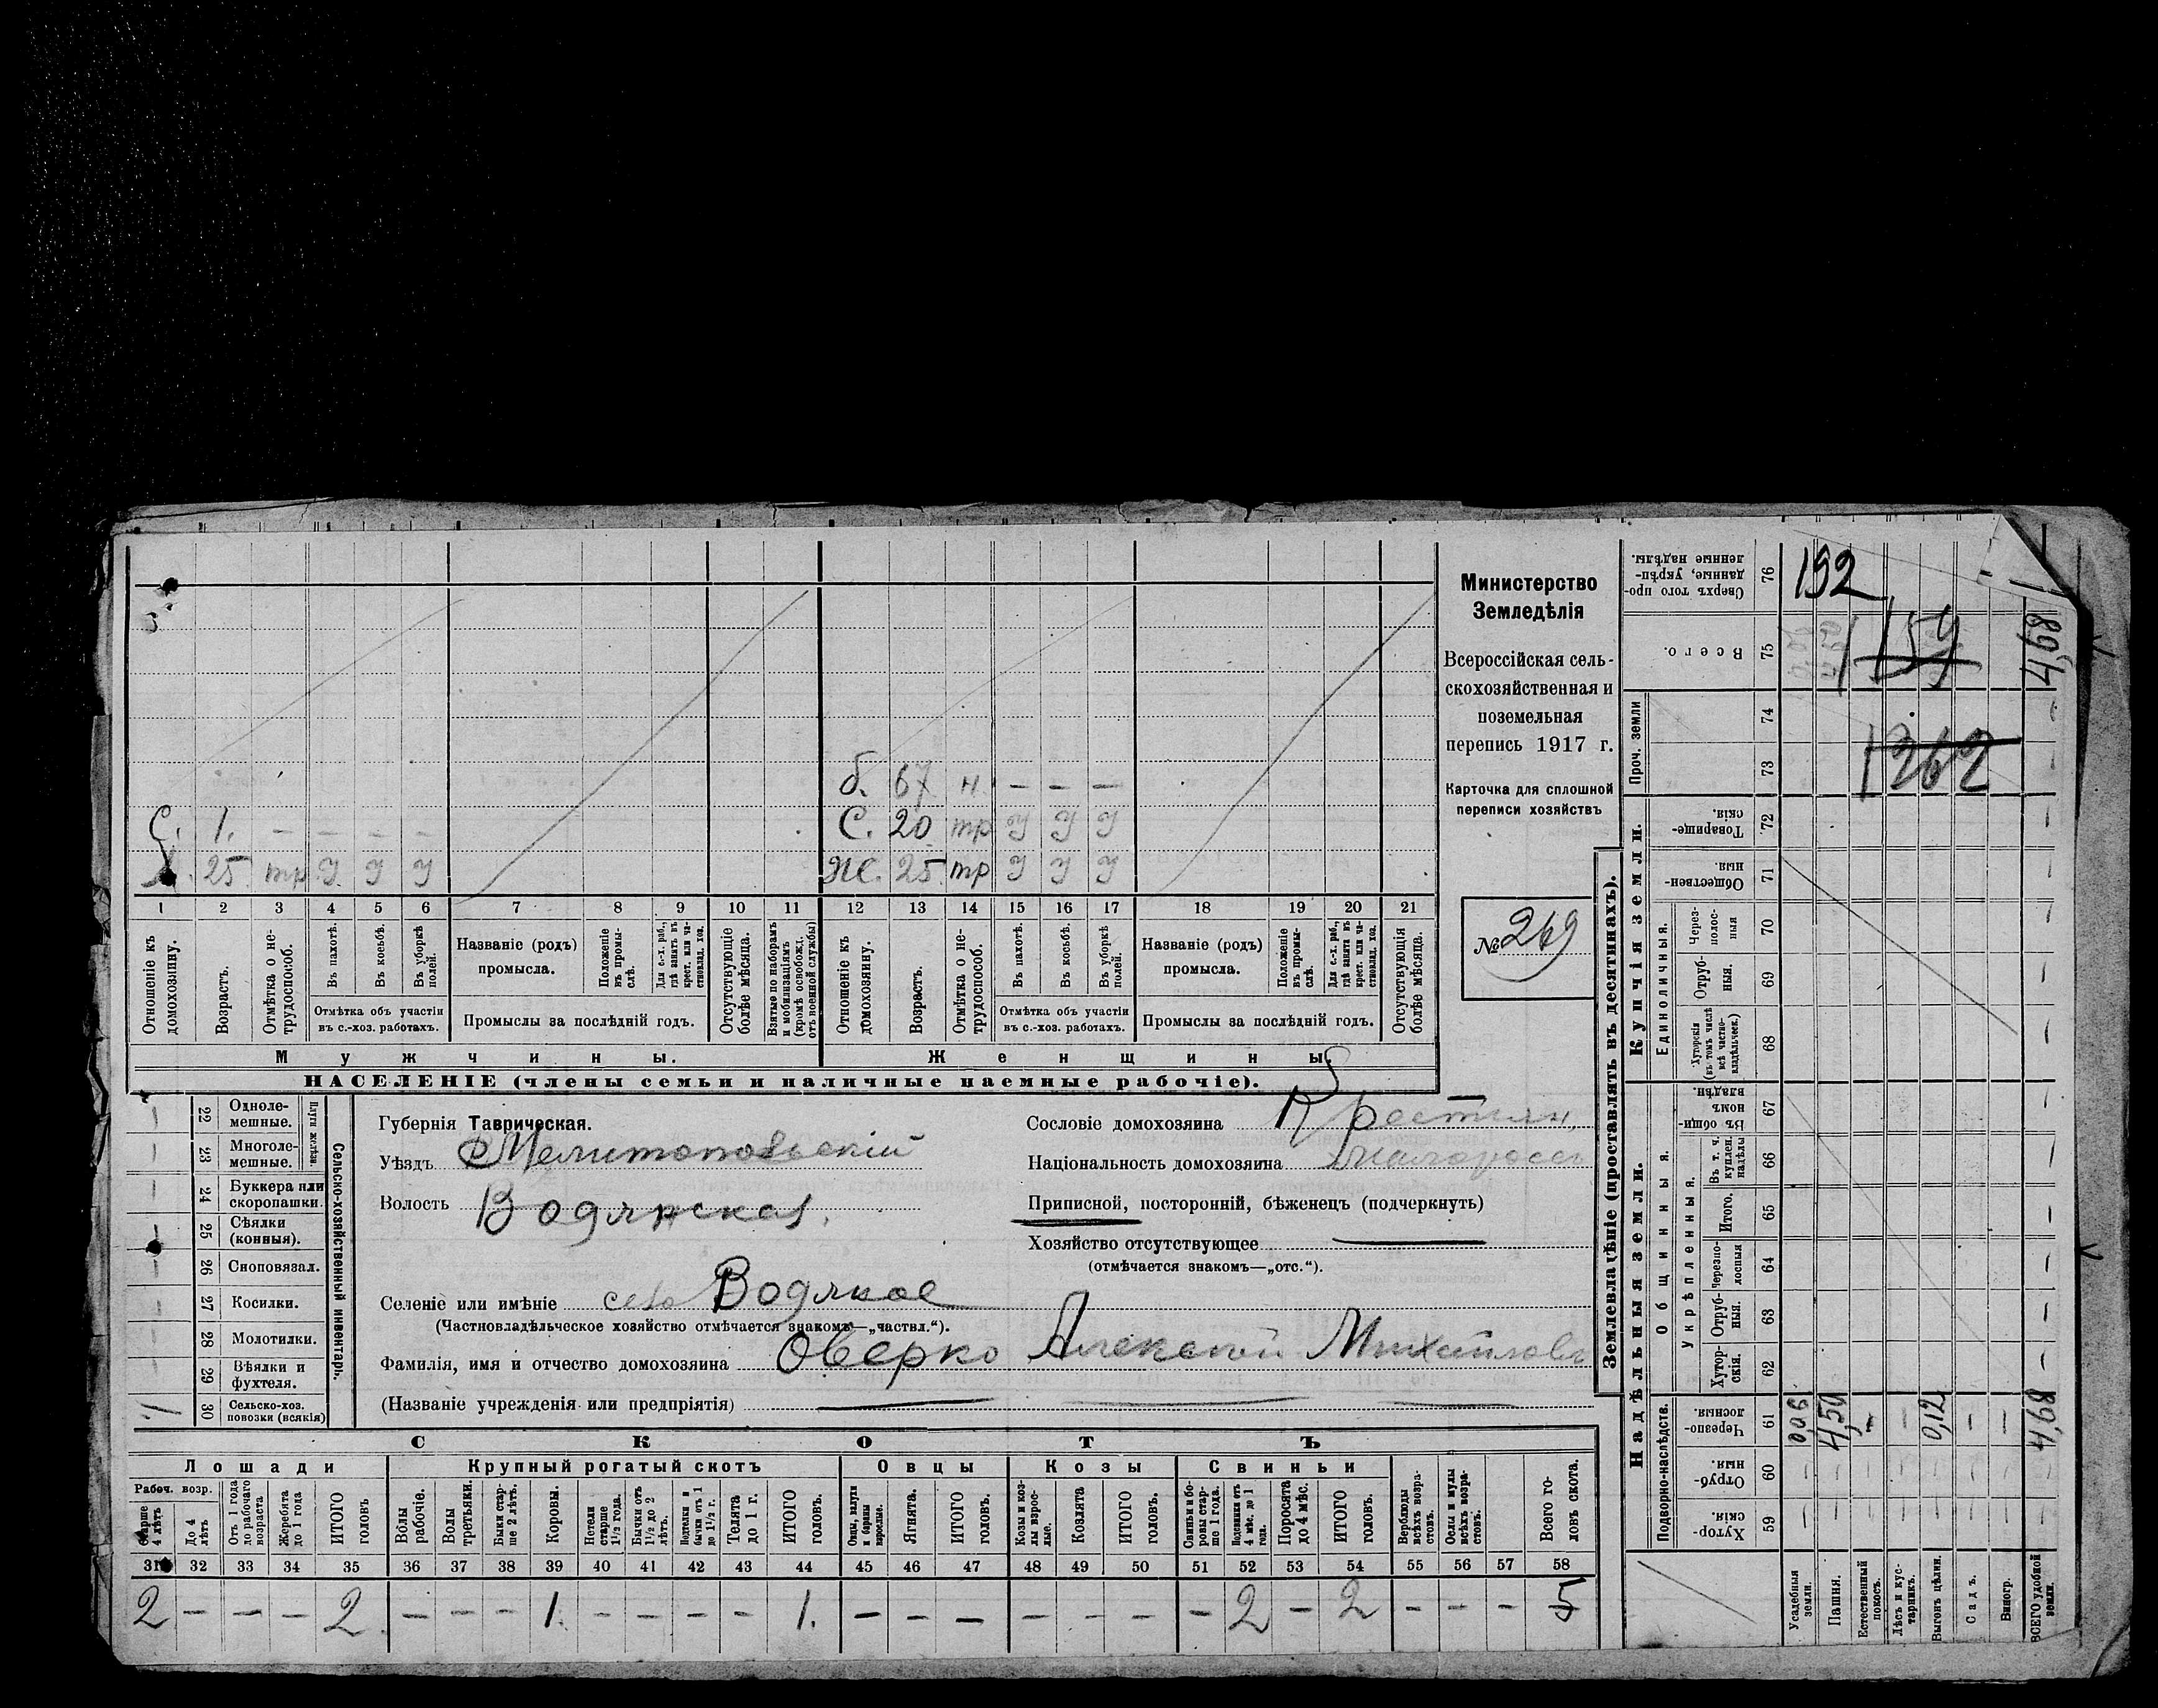 б. 67 н. — — —
С. 1. — — — — С. 20 тр У У У
х. 25 тр У У У Ж. 25 тр У У У
1 2 3 4 5 6 7 8 9 10 11 12 13 14 15 16 17 18 19 20 21
Отношеніе къ домохозяину.
Возрастъ.
Отмѣтка о не-трудоспособ.
Въ пахотѣ.
Въ косьбѣ.
Въ уборкѣ полей.
Отмѣтка объ участіи въ с.-хоз. работахъ.
Названіе (родъ) промысла.
Положеніе въ промы-слѣ.
Для с.-х. раб., гдѣ занятъ въ крест. или ча-стновлад. хоз.
Промыслы за послѣдній годъ.
Отсутствующіе болѣе мѣсяца.
Взятые по наборамъ и мобилизаціямъ (кромѣ освобожд. отъ военной службы)
Отношеніе къ домохозяину.
Возрастъ.
Отмѣтка о не-трудоспособ.
Въ пахотѣ.
Въ косьбѣ.
Въ уборкѣ полей.
Отмѣтка объ участіи въ с.-хоз. работахъ.
Названіе (родъ) промысла.
Положеніе въ промы-слѣ.
Для с.-х. раб., гдѣ занята въ крест. или ча-стновлад. хоз.
Промыслы за послѣдній годъ.
Отсутствующія болѣе мѣсяца.
Мужчины. Женщины.
НАСЕЛЕНІЕ (члены семьи и наличные наемные рабочіе).
Министерство
Земледѣлія
Всероссійская сель-
скохозяйственная и
поземельная
перепись 1917 г.
Карточка для сплошной
переписи хозяйствъ
№ 269
22 Одноле-мешные.
23 Многоле-мешные.
Плуги желѣзн.
24 Буккера или скоропашки.
25 Сѣялки (конныя).
26 Сноповязал.
27 Косилки.
28 Молотилки.
29 Вѣялки и фухтеля.
30 Сельско-хоз. повозки (всякія) 1
Сельско-хозяйственный инвентарь.
Губернія Таврическая.
Уѣздъ Мелитопольскій
Волость Водянская
Селеніе или имѣніе село Водяное
(Частновладѣльческое хозяйство отмѣчается знакомъ—„частвл.“).
Фамилія, имя и отчество домохозяина Оверко Алексѣй Михайловъ
(Названіе учрежденія или предпріятія)
Сословіе домохозяина Крестьян,
Національность домохозяина малороссъ
Приписной, посторонній, бѣженецъ (подчеркнуть)
Хозяйство отсутствующее
(отмѣчается знакомъ—„отс.“).
СКОТЪ
Лошади Крупный рогатый скотъ Овцы Козы Свиньи
Рабоч. возр.
Старше 4 лѣтъ
До 4 лѣтъ
Отъ 1 года до рабочаго возраста
Жеребята до 1 года
ИТОГО головъ
Волы рабочіе.
Волы третьяки.
Быки стар-ше 2 лѣтъ.
Коровы.
Нетели старше 1½ года.
Бычки отъ 1½ до 2 лѣтъ.
Подтелки и бычки отъ 1 до 1½ г.
Телята до 1 г.
ИТОГО головъ.
Овцы, валухи и бараны взрослые.
Ягнята.
ИТОГО головъ.
Козы и коз-лы взрос-лые.
Козлята
ИТОГО головъ.
Свиньи и бо-ровы стар-ше 1 года.
Подсвинки отъ 4 мѣс. до 1 года.
Поросята до 4 мѣс.
ИТОГО головъ.
Верблюды всѣхъ возра-стовъ.
Ослы и мулы всѣхъ возра-стовъ.
Всего го-ловъ скота.
31 32 33 34 35 36 37 38 39 40 41 42 43 44 45 46 47 48 49 50 51 52 53 54 55 56 57 58
2 — — — 2 — — — 1. — — — — 1. — — — — — — — 2 — 2 — — — 5
Землевладѣніе (проставлять въ десятинахъ).
Надѣльныя земли. Купчія земли. Проч. земли
Подворно-наслѣдств. Общинныя. Единоличныя.
Укрѣпленныя.
Хутор-скія. 59
Отруб-ныя. 60
Черезпо-лосныя. 61
Хутор-скія. 62
Отруб-ныя. 63
Черезпо-лосныя 64
Итого. 65
Въ т. ч. куплен. надѣлы 66
Въ общин-номъ владѣн. 67
Хуторскія (въ томъ числѣ всѣ частно-владѣльческ.) 68
Отруб-ныя. 69
Через-полос-ныя 70
Обществен-ныя. 71
Товарище-скія. 72
73
74
Всего. 75
Сверхъ того про-данные, укрѣп-ленные надѣлы. 76
192
159
1262
4,68
Усадебныя земли. — — 0,06
Пашня. — — 4,50
Естественный покосъ. — — —
Лѣсъ и кус-тарникъ. — — —
Выгонъ цѣлин. — — 0,12
Садъ. — — —
Виногр. — — —
ВСЕГО удобной земли. — — 4,68